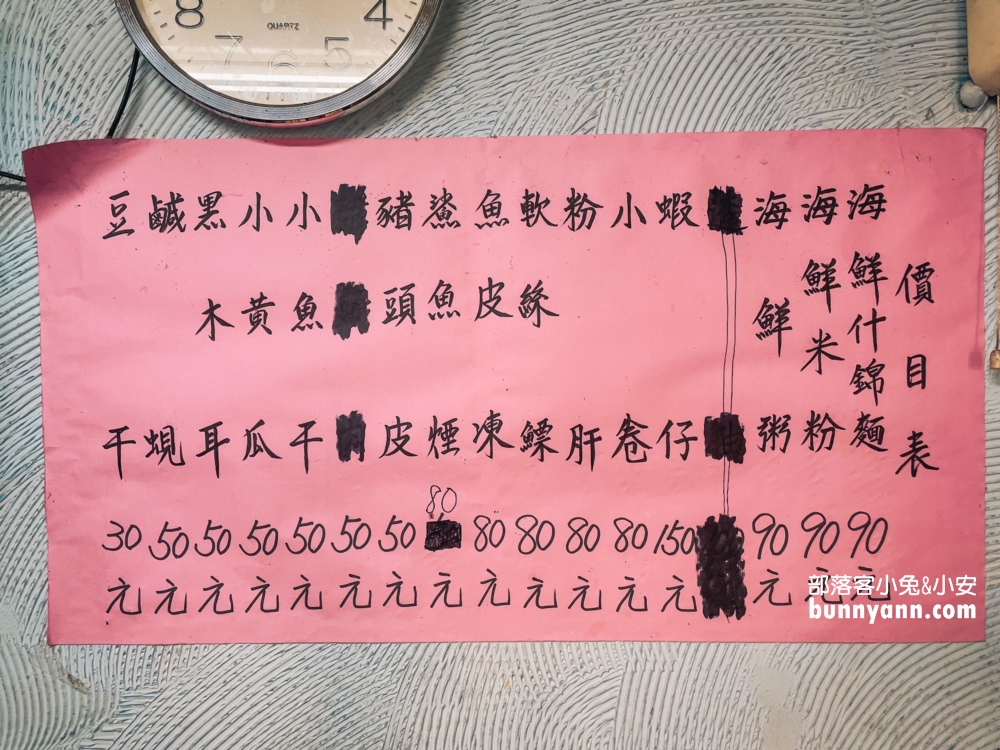 8 7 6 5 4
QUARTZ
價目表
海鮮什錦麵90元
海鮮米粉90元
海鮮粥90元
蝦仔150元
小卷80元
粉肝80元
軟絲鰾80元
魚皮凍80元
鯊魚煙80元
豬頭皮50元
50元
小魚干50元
小黃瓜50元
黑木耳50元
鹹蜆50元
豆干30元
部落客小兔&小安
bunnyann.com